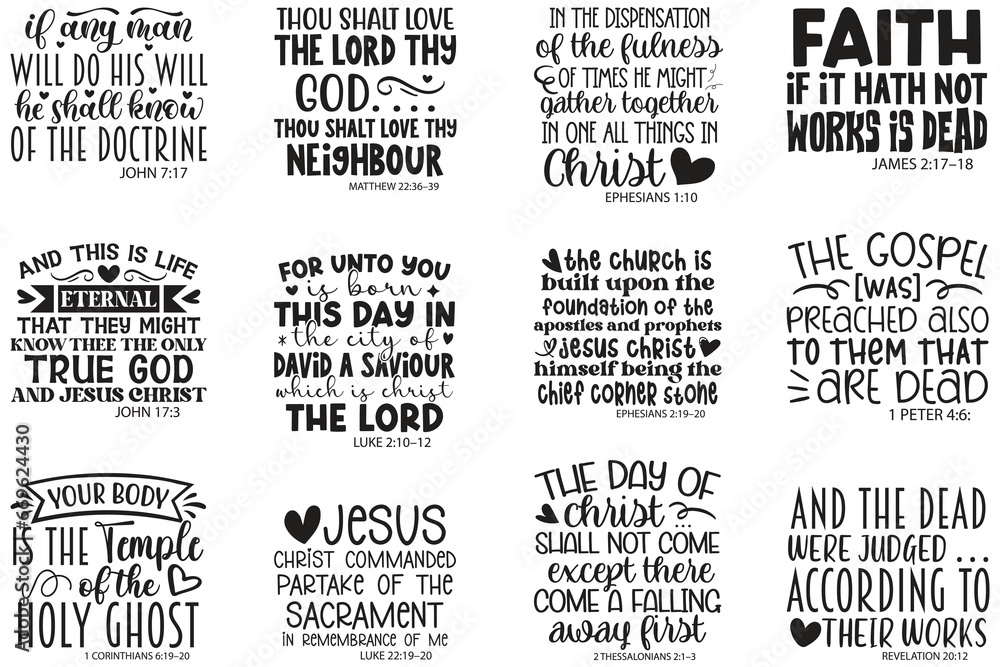 if any man
WILL DO HIS WILL
he shall know
OF THE DOCTRINE
JOHN 7:17
THOU SHALT LOVE
THE LORD THY
GOD....
THOU SHALT LOVE THY
NEIGHBOUR
MATTHEW 22:36–39
IN THE DISPENSATION
of the fulness
OF TIMES HE MIGHT
gather together
IN ONE ALL THINGS IN
Christ
EPHESIANS 1:10
FAITH
IF IT HATH NOT
WORKS IS DEAD
JAMES 2:17–18
AND THIS IS LIFE
ETERNAL
THAT THEY MIGHT
KNOW THEE THE ONLY
TRUE GOD
AND JESUS CHRIST
JOHN 17:3
FOR UNTO YOU
is born
THIS DAY IN
the city of
DAVID A SAVIOUR
which is christ
THE LORD
LUKE 2:10–12
the church is
built upon the
foundation of the
apostles and prophets
jesus christ
himself being the
chief corner stone
EPHESIANS 2:19–20
THE GOSPEL
[WAS]
PREACHED ALSO
TO THEM THAT
ARE DEAD
1 PETER 4:6:
YOUR BODY
IS THE Temple
of the
HOLY GHOST
1 CORINTHIANS 6:19–20
JESUS
CHRIST COMMANDED
PARTAKE OF THE
SACRAMENT
IN REMEMBRANCE OF ME
LUKE 22:19–20
THE DAY OF
christ ...
SHALL NOT COME
except there
COME A FALLING
away first
2 THESSALONIANS 2:1–3
AND THE DEAD
WERE JUDGED ...
ACCORDING TO
THEIR WORKS
REVELATION 20:12
Adobe Stock | #699624430